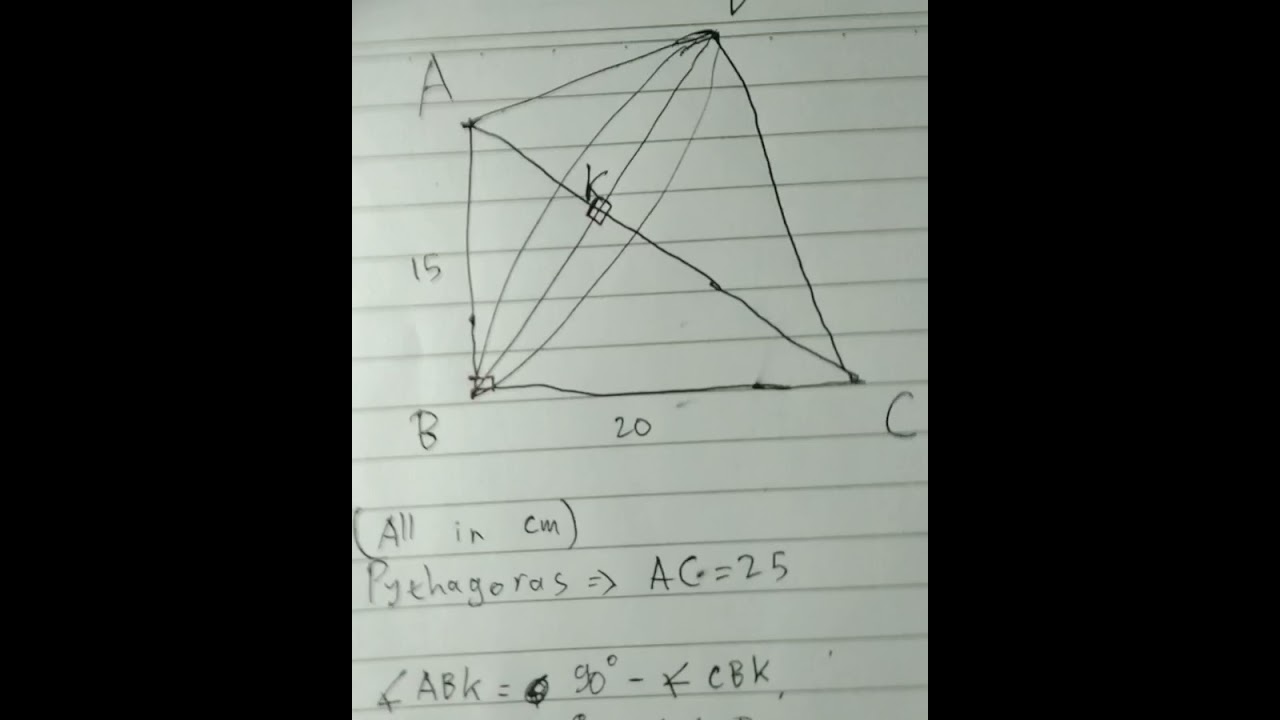 A
K
15
B
20
C
(All in cm)
Pythagoras => AC=25
∠ABK = 90° - ∠CBK,